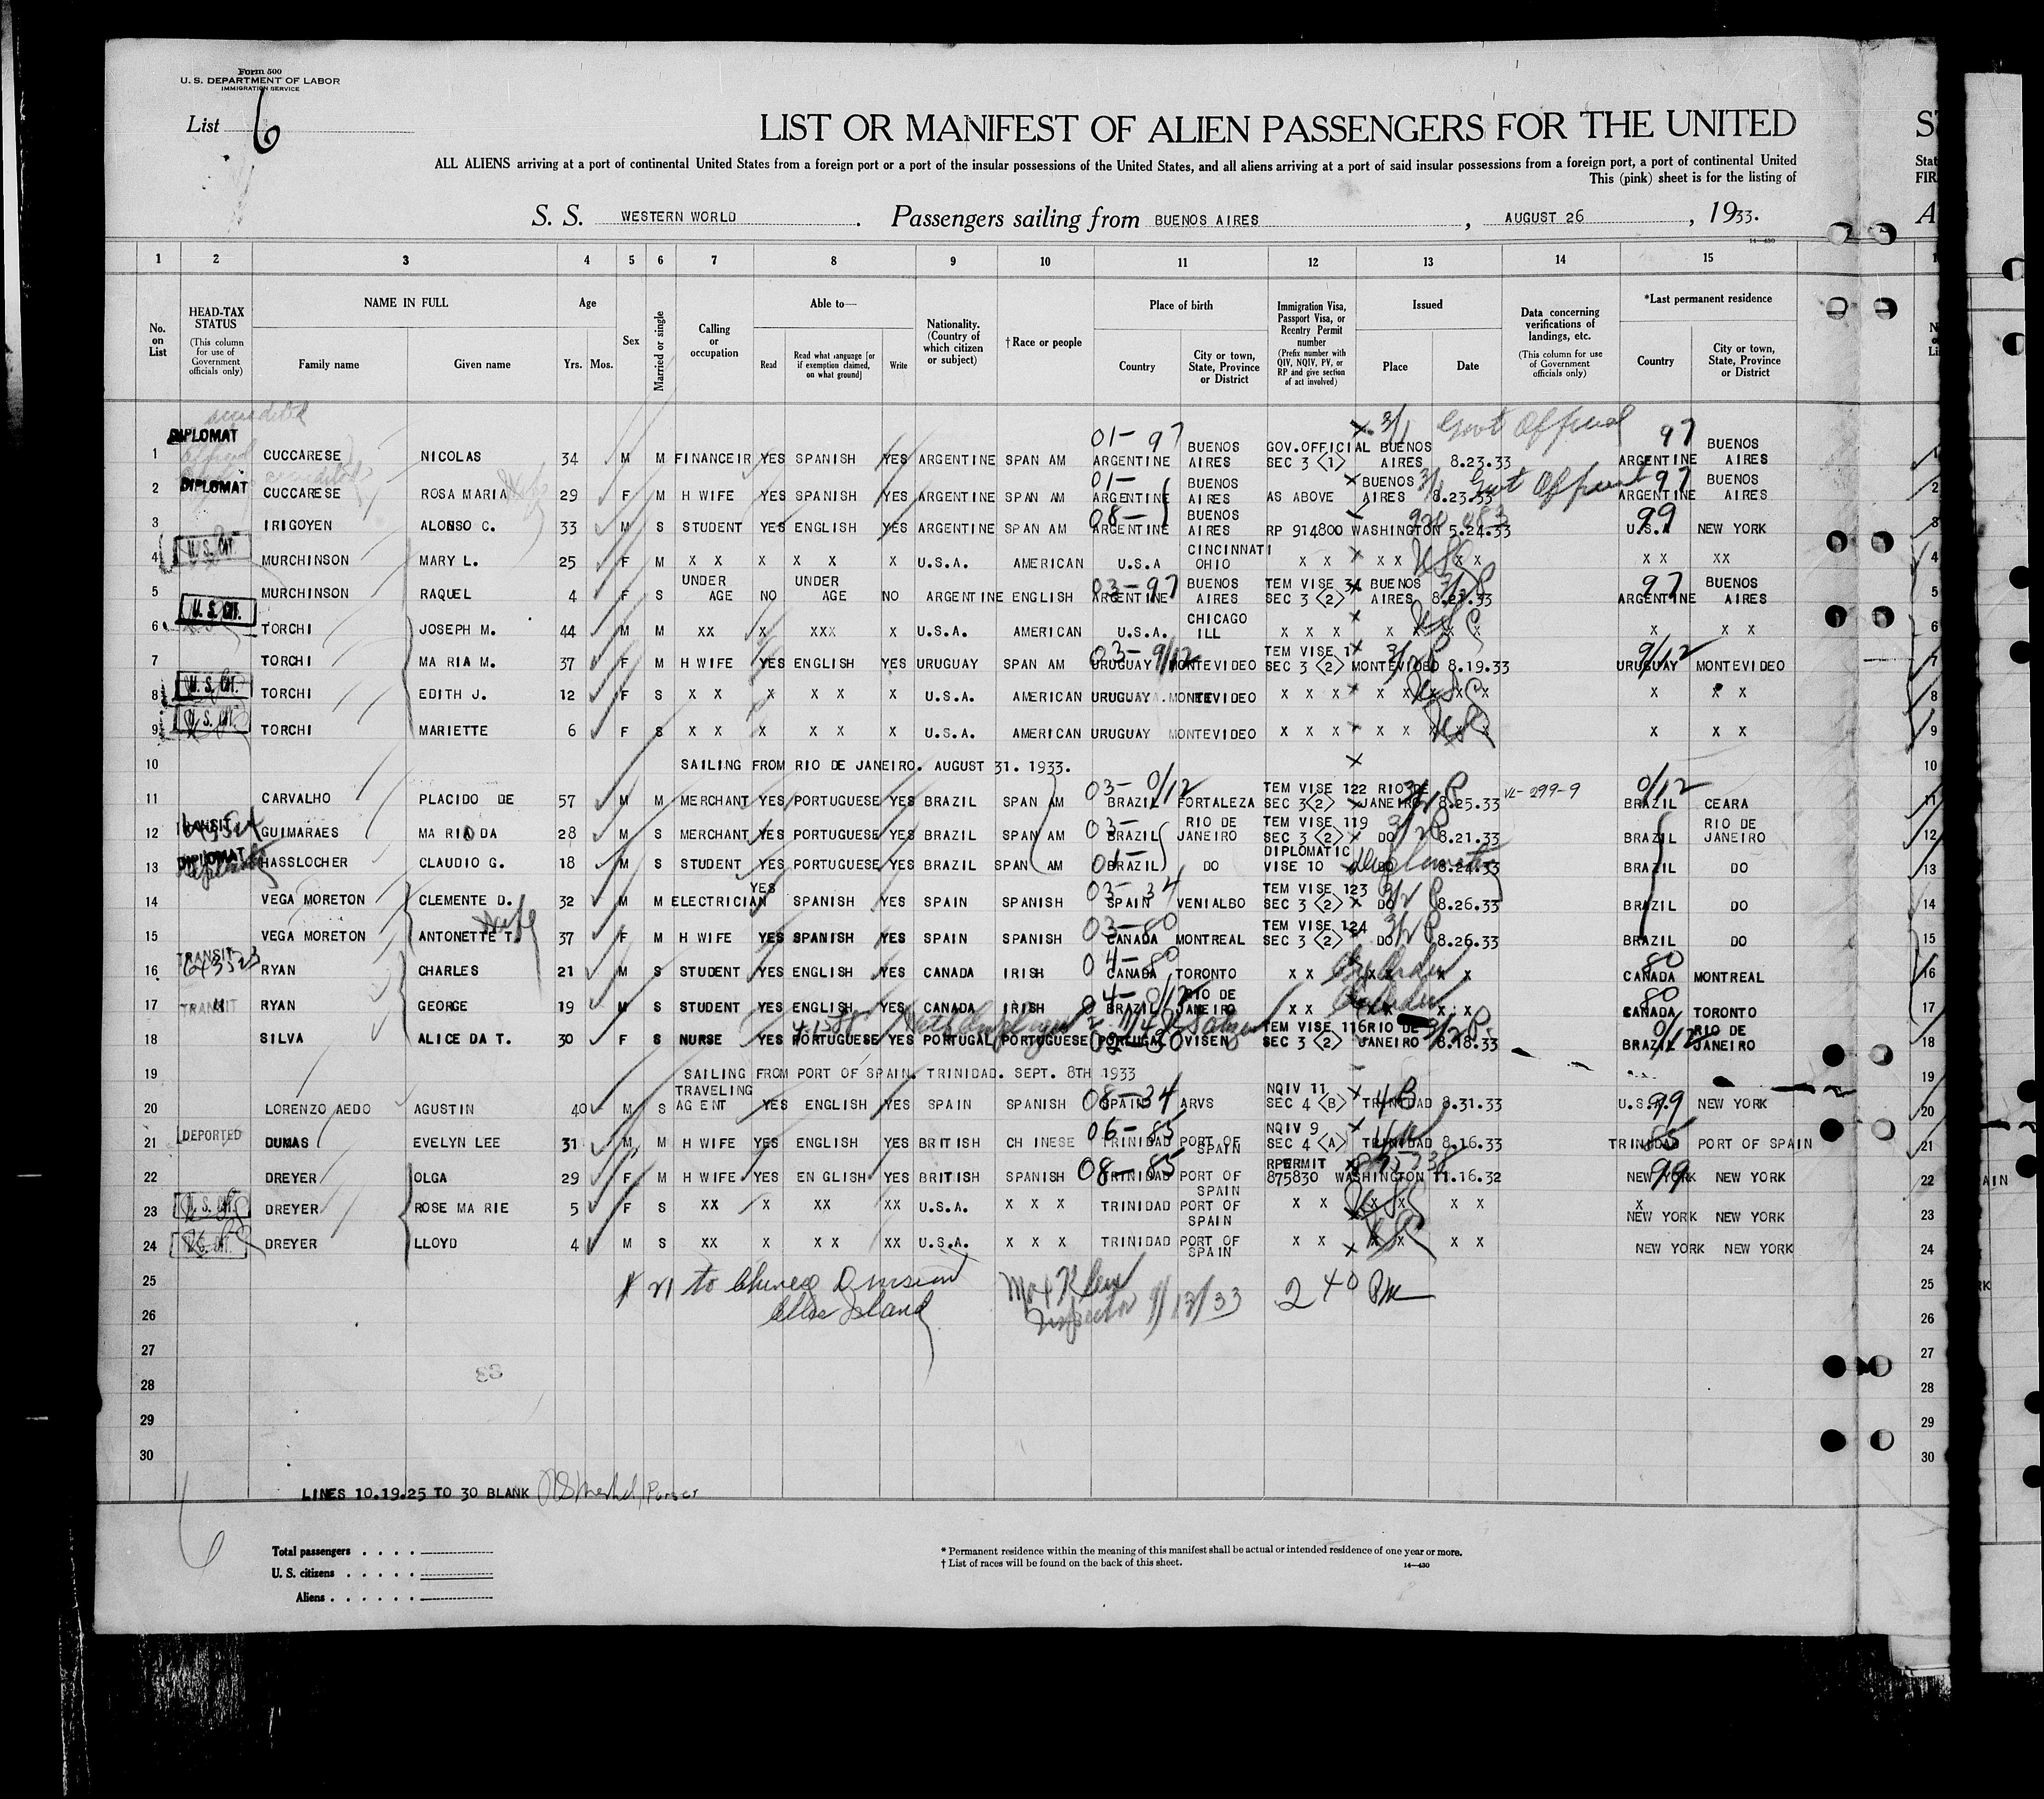 Form 500
U. S. DEPARTMENT OF LABOR
IMMIGRATION SERVICE
List 6
LIST OR MANIFEST OF ALIEN PASSENGERS FOR THE UNITED
ALL ALIENS arriving at a port of continental United States from a foreign port or a port of the insular possessions of the United States, and all aliens arriving at a port of said insular possessions from a foreign port, a port of continental United
This (pink) sheet is for the listing of
S. S. WESTERN WORLD. Passengers sailing from BUENOS AIRES, AUGUST 26, 1933.
14—430
1 2 3 4 5 6 7 8 9 10 11 12 13 14 15
No. on List
HEAD-TAX STATUS (This column for use of Government officials only)
NAME IN FULL Family name Given name
Age Yrs. Mos.
Sex
Married or single
Calling or occupation
Able to— Read Read what language [or if exemption claimed, on what ground] Write
Nationality. (Country of which citizen or subject)
†Race or people
Place of birth Country City or town, State, Province or District
Immigration Visa, Passport Visa, or Reentry Permit number (Prefix number with QIV, NQIV, PV, or RP and give section of act involved)
Issued Place Date
Data concerning verifications of landings, etc. (This column for use of Government officials only)
*Last permanent residence Country City or town, State, Province or District
1 DIPLOMAT CUCCARESE NICOLAS 34 M M FINANCEIR YES SPANISH YES ARGENTINE SPAN AM 01-97 ARGENTINE BUENOS AIRES GOV.OFFICIAL SEC 3 <1> BUENOS AIRES 8.23.33 3/1 Govt Official 97 ARGENTINE BUENOS AIRES
2 DIPLOMAT CUCCARESE ROSA MARIA 29 F M H WIFE YES SPANISH YES ARGENTINE SPAN AM 01- ARGENTINE BUENOS AIRES AS ABOVE BUENOS AIRES 8.23.33 3/1 Govt Official 97 ARGENTINE BUENOS AIRES
3 IRIGOYEN ALONSO C. 33 M S STUDENT YES ENGLISH YES ARGENTINE SPAN AM 08- ARGENTINE BUENOS AIRES RP 914800 WASHINGTON 5.24.33 99 U.S.A NEW YORK
4 U.S. CIT. MURCHINSON MARY L. 25 F M X X X X X X U.S.A. AMERICAN U.S.A CINCINNATI OHIO X X X X X X USC X X XX
5 MURCHINSON RAQUEL 4 F S UNDER AGE NO UNDER AGE NO ARGENTINE ENGLISH 03-97 ARGENTINE BUENOS AIRES TEM VISE 34 SEC 3 <2> BUENOS AIRES 8.21.33 97 ARGENTINE BUENOS AIRES
6 U.S. CIT. TORCHI JOSEPH M. 44 M M XX X XXX X U.S.A. AMERICAN U.S.A. CHICAGO ILL X X X X X X X USC X X X
7 TORCHI MARIA M. 37 F M H WIFE YES ENGLISH YES URUGUAY SPAN AM 03-9/12 URUGUAY MONTEVIDEO TEM VISE 1 SEC 3 <2> MONTEVIDEO 8.19.33 9/12 URUGUAY MONTEVIDEO
8 U.S. CIT. TORCHI EDITH J. 12 F S X X X X X X U.S.A. AMERICAN URUGUAY MONTEVIDEO X X X X X X X USC X X X
9 U.S. CIT. TORCHI MARIETTE 6 F S X X X X X X U.S.A. AMERICAN URUGUAY MONTEVIDEO X X X X X X X USC X X X
10 SAILING FROM RIO DE JANEIRO. AUGUST 31. 1933.
11 CARVALHO PLACIDO DE 57 M M MERCHANT YES PORTUGUESE YES BRAZIL SPAN AM 03-0/12 BRAZIL FORTALEZA TEM VISE 122 SEC 3 <2> RIO DE JANEIRO 8.25.33 VL-299-9 0/12 BRAZIL CEARA
12 TRANSIT GUIMARAES MARIA DA 28 M S MERCHANT YES PORTUGUESE YES BRAZIL SPAN AM 03- BRAZIL RIO DE JANEIRO TEM VISE 119 SEC 3 <2> DO 8.21.33 BRAZIL RIO DE JANEIRO
13 DIPLOMAT HASSLOCHER CLAUDIO G. 18 M S STUDENT YES PORTUGUESE YES BRAZIL SPAN AM 01- BRAZIL DO DIPLOMATIC VISE 10 DO 8.24.33 BRAZIL DO
14 VEGA MORETON CLEMENTE D. 32 M M ELECTRICIAN YES SPANISH YES SPAIN SPANISH 03-34 SPAIN VENIALBO TEM VISE 123 SEC 3 <2> DO 8.26.33 BRAZIL DO
15 VEGA MORETON ANTONETTE T. 37 F M H WIFE YES SPANISH YES SPAIN SPANISH 03-80 CANADA MONTREAL TEM VISE 124 SEC 3 <2> DO 8.26.33 BRAZIL DO
16 TRANSIT 643523 RYAN CHARLES 21 M S STUDENT YES ENGLISH YES CANADA IRISH 04-80 CANADA TORONTO X X X X X X 80 CANADA MONTREAL
17 TRANSIT RYAN GEORGE 19 M S STUDENT YES ENGLISH YES CANADA IRISH 04-0/12 BRAZIL RIO DE JANEIRO X X X X X X 80 CANADA TORONTO
18 SILVA ALICE DA T. 30 F S NURSE YES PORTUGUESE YES PORTUGAL PORTUGUESE 02-30 PORTUGAL VISEN TEM VISE 116 SEC 3 <2> RIO DE JANEIRO 8.18.33 0/12 BRAZIL RIO DE JANEIRO
19 SAILING FROM PORT OF SPAIN. TRINIDAD. SEPT. 8TH 1933
20 LORENZO AEDO AGUSTIN 40 M S TRAVELING AGENT YES ENGLISH YES SPAIN SPANISH 08-34 SPAIN ARVS NQIV 11 SEC 4 <B> 4B TRINIDAD 8.31.33 99 U.S.A. NEW YORK
21 DEPORTED DUMAS EVELYN LEE 31 M M H WIFE YES ENGLISH YES BRITISH CHINESE 06-85 TRINIDAD PORT OF SPAIN NQIV 9 SEC 4 <A> 4A TRINIDAD 8.16.33 85 TRINIDAD PORT OF SPAIN
22 DREYER OLGA 29 F M H WIFE YES ENGLISH YES BRITISH SPANISH 08-85 TRINIDAD PORT OF SPAIN RPERMIT 875830 WASHINGTON 11.16.32 99 NEW YORK NEW YORK
23 U.S. CIT. DREYER ROSE MARIE 5 F S XX X XX XX U.S.A. X X X TRINIDAD PORT OF SPAIN X X X X X X USC X NEW YORK NEW YORK
24 U.S. CIT. DREYER LLOYD 4 M S XX X X X XX U.S.A. X X X TRINIDAD PORT OF SPAIN X X X X X X USC NEW YORK NEW YORK
25 # 21 to Chinese Division 2 40 PM
26 Ellis Island Inspector 9/12/33
27
28
29
30
LINES 10.19.25 TO 30 BLANK Purser
6
Total passengers
U. S. citizens
Aliens
* Permanent residence within the meaning of this manifest shall be actual or intended residence of one year or more.
† List of races will be found on the back of this sheet.
14—430